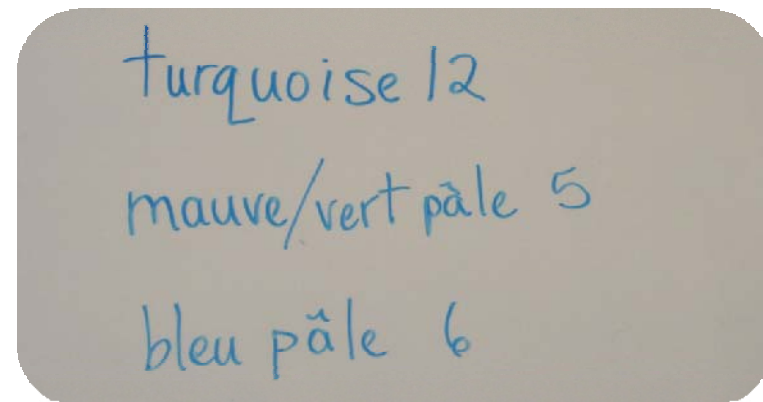 turquoise 12
mauve/vert pâle 5
bleu pâle 6